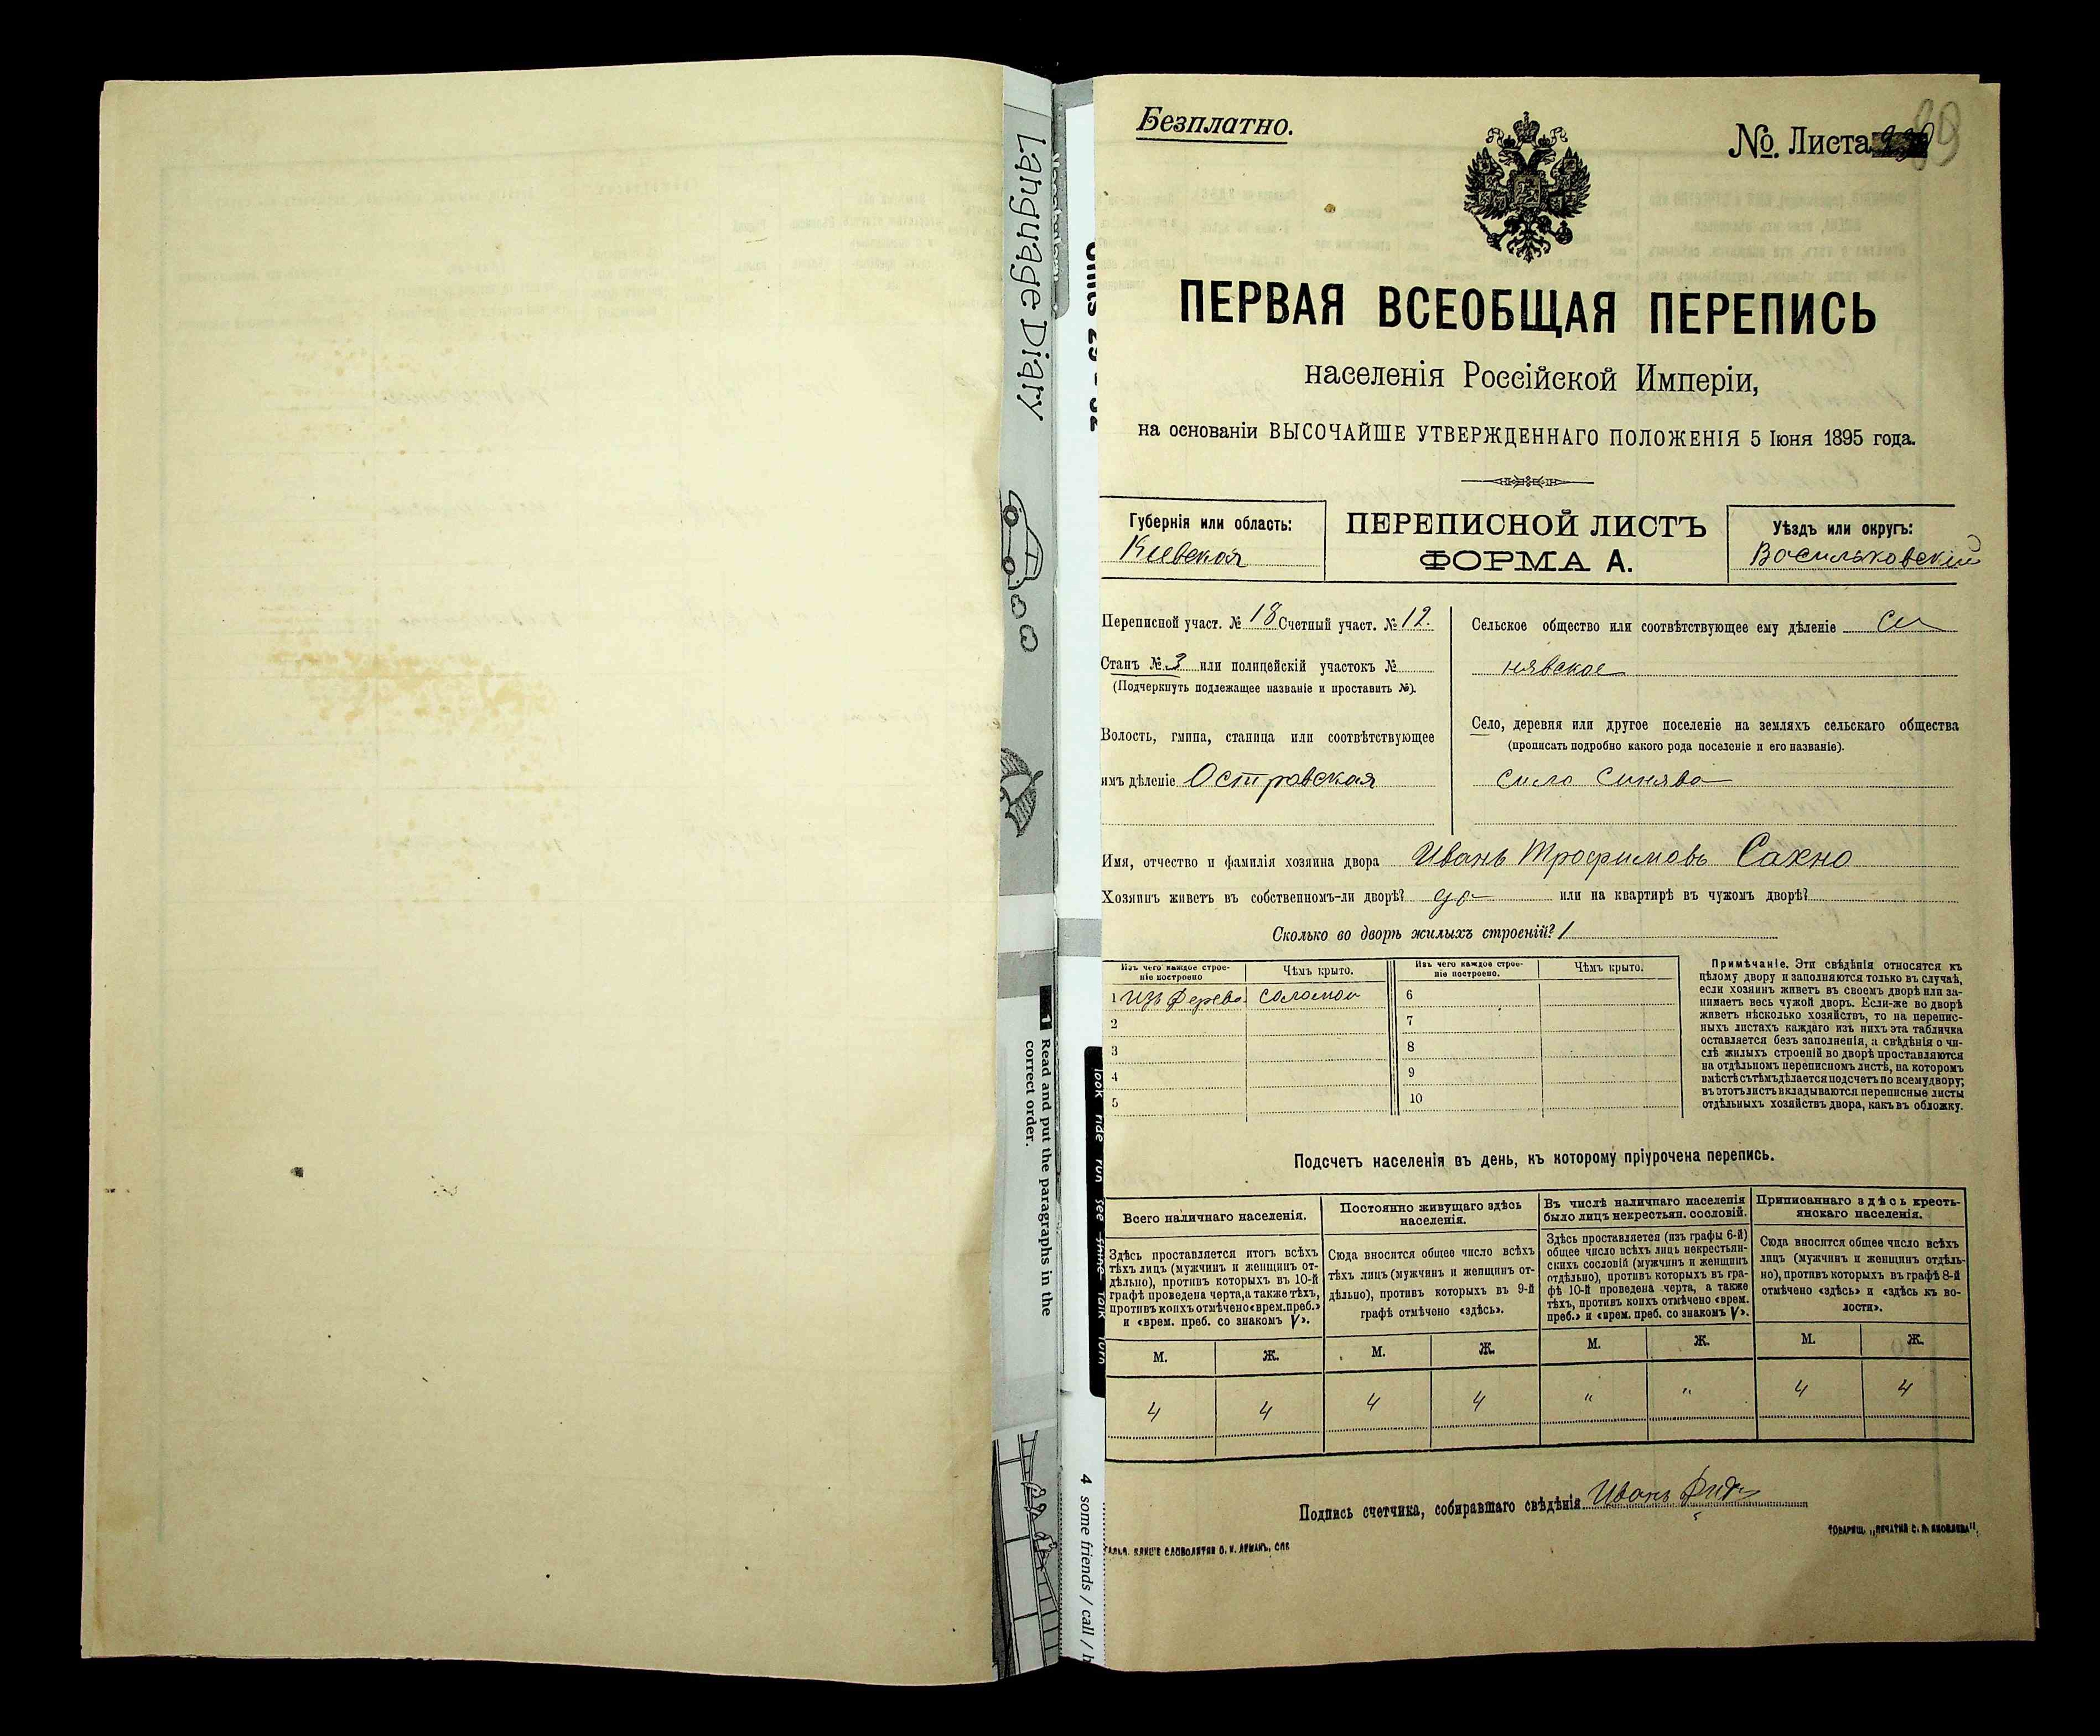 Language Diary
1 Read and put the paragraphs in the
correct order.
look ride run see shine talk turn
4 some friends / call /
Безплатно.
№. Листа
89
ПЕРВАЯ ВСЕОБЩАЯ ПЕРЕПИСЬ
населенія Россійской Имперіи,
на основаніи ВЫСОЧАЙШЕ УТВЕРЖДЕННАГО ПОЛОЖЕНІЯ 5 Іюня 1895 года.
Губернія или область:
Кіевская
ПЕРЕПИСНОЙ ЛИСТЪ
ФОРМА А.
Уѣздъ или округъ:
Васильковскій
Переписной участ. № 18 Счетный участ. № 12.
Станъ № 3 или полицейскій участокъ №
(Подчеркнуть подлежащее названіе и проставить №).
Волость, гмина, станица или соотвѣтствующее
имъ дѣленіе Островская
Сельское общество или соотвѣтствующее ему дѣленіе Си
нявское
Село, деревня или другое поселеніе на земляхъ сельскаго общества
(прописать подробно какого рода поселеніе и его названіе).
село Синява
Имя, отчество и фамилія хозяина двора Иванъ Трофимовъ Сахно
Хозяинъ живетъ въ собственномъ-ли дворѣ? да или на квартирѣ въ чужомъ дворѣ?
Сколько во дворѣ жилыхъ строеній? 1
Изъ чего каждое строе-
ніе построено
Чѣмъ крыто.
Изъ чего каждое строе-
ніе построено.
Чѣмъ крыто.
1 изъ дерева соломой 6
2 7
3 8
4 9
5 10
Примѣчаніе. Эти свѣдѣнія относятся къ
цѣлому двору и заполняются только въ случаѣ,
если хозяинъ живетъ въ своемъ дворѣ или за-
нимаетъ весь чужой дворъ. Если-же во дворѣ
живетъ нѣсколько хозяйствъ, то на перепис-
ныхъ листахъ каждаго изъ нихъ эта табличка
оставляется безъ заполненія, а свѣдѣнія о чи-
слѣ жилыхъ строеній во дворѣ проставляются
на отдѣльномъ переписномъ листѣ, на которомъ
вмѣстѣ съ тѣмъ дѣлается подсчетъ по всему двору;
въ этотъ листъ вкладываются переписные листы
отдѣльныхъ хозяйствъ двора, какъ въ обложку.
Подсчетъ населенія въ день, къ которому пріурочена перепись.
Всего наличнаго населенія.
Здѣсь проставляется итогъ всѣхъ
тѣхъ лицъ (мужчинъ и женщинъ от-
дѣльно), противъ которыхъ въ 10-й
графѣ проведена черта, а также тѣхъ,
противъ коихъ отмѣчено «врем. преб.»
и «врем. преб. со знакомъ V».
Постоянно живущаго здѣсь
населенія.
Сюда вносится общее число всѣхъ
тѣхъ лицъ (мужчинъ и женщинъ от-
дѣльно), противъ которыхъ въ 9-й
графѣ отмѣчено «здѣсь».
Въ числѣ наличнаго населенія
было лицъ некрестьян. сословій.
Здѣсь проставляется (изъ графы 6-й)
общее число всѣхъ лицъ некрестьян-
скихъ сословій (мужчинъ и женщинъ
отдѣльно), противъ которыхъ въ гра-
фѣ 10-й проведена черта, а также
тѣхъ, противъ коихъ отмѣчено «врем.
преб.» и «врем. преб. со знакомъ V».
Приписаннаго здѣсь кресть-
янскаго населенія.
Сюда вносится общее число всѣхъ
лицъ (мужчинъ и женщинъ отдѣль-
но), противъ которыхъ въ графѣ 8-й
отмѣчено «здѣсь» и «здѣсь къ во-
лости».
М. Ж. М. Ж. М. Ж. М. Ж.
4 4 4 4 " " 4 4
Подпись счетчика, собиравшаго свѣдѣнія Иванъ
ТОВАРИЩ. „ПЕЧАТНЯ С. П. ЯКОВЛЕВА".
КЛИШЕ СЛОВОЛИТНИ О. И. ЛЕМАНЪ, СПБ